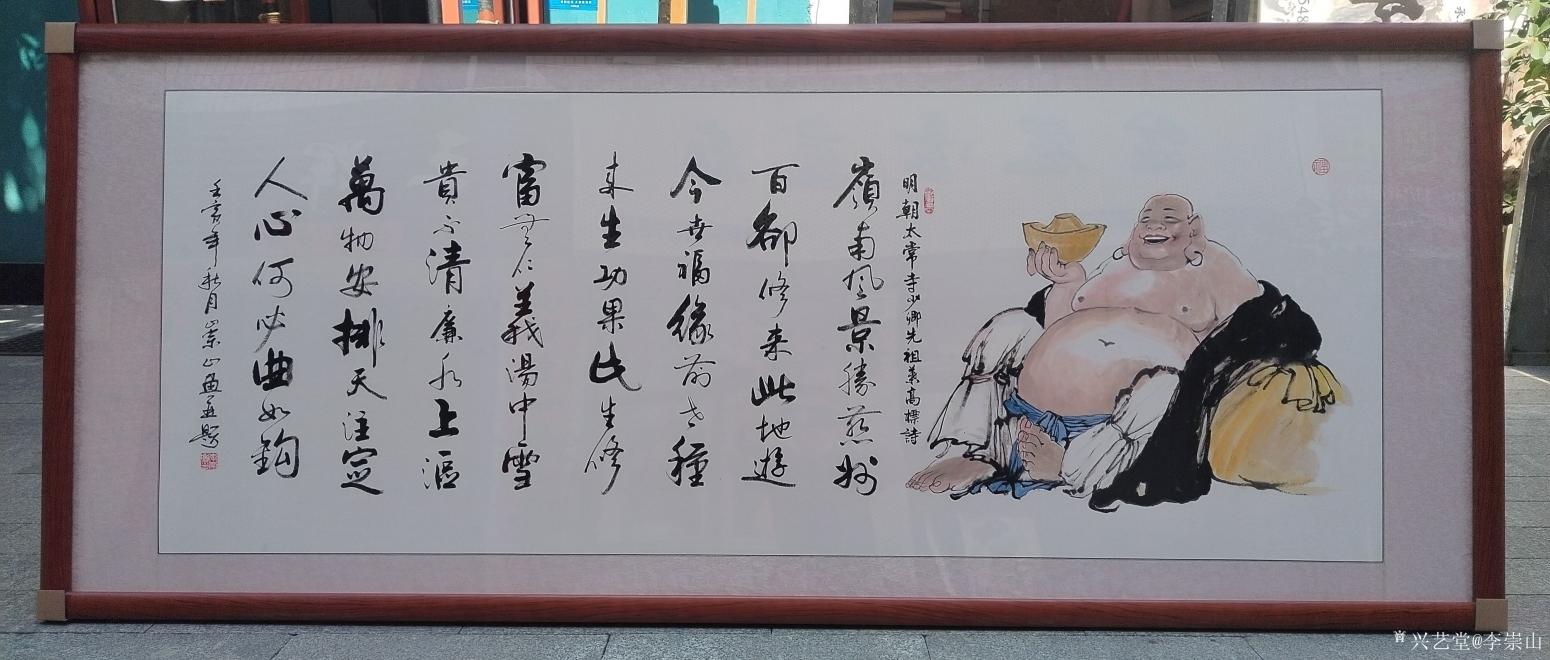 明朝太常寺少卿先祖葉高標詩
嶺南風景勝州
百卻修來此地遊
今世福緣前世種
来生功果此生修
富無仁義湯中雪
貴不清廉水上漚
萬物安排天注定
人心何必曲如鈎
壬寅年秋月崇山画並題
福
548
兴艺堂@李崇山